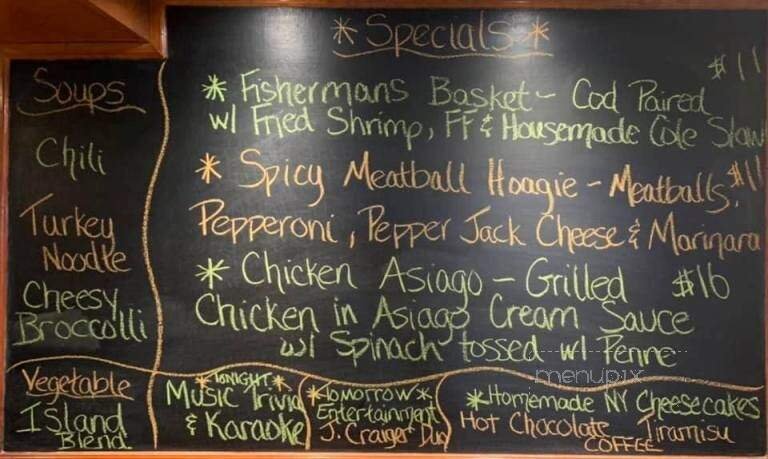 *Specials*
Soups
Chili
Turkey
Noodle
Cheesy
Broccolli
Vegetable
Island
Blend
$11
* Fishermans Basket - Cod Paired
w/ Fried Shrimp, FF & Housemade Cole Slaw
* Spicy Meatball Hoagie - Meatballs, $11
Pepperoni, Pepper Jack Cheese & Marinara
* Chicken Asiago - Grilled $16
Chicken in Asiago Cream Sauce
w/ Spinach tossed w/ Penne
*TONIGHT*
Music Trivia
& Karaoke
*Tomorrow*
Entertainment
J. Craiger Duo
*Homemade NY Cheesecakes
Hot Chocolate Tiramisu
COFFEE
menupix